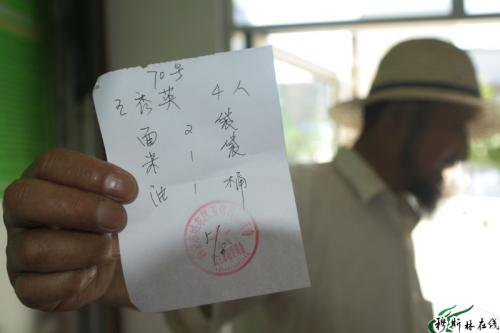 70号
王秀英 4人
面 2 袋
米 1 袋
油 1 桶
5/8
穆斯林在线